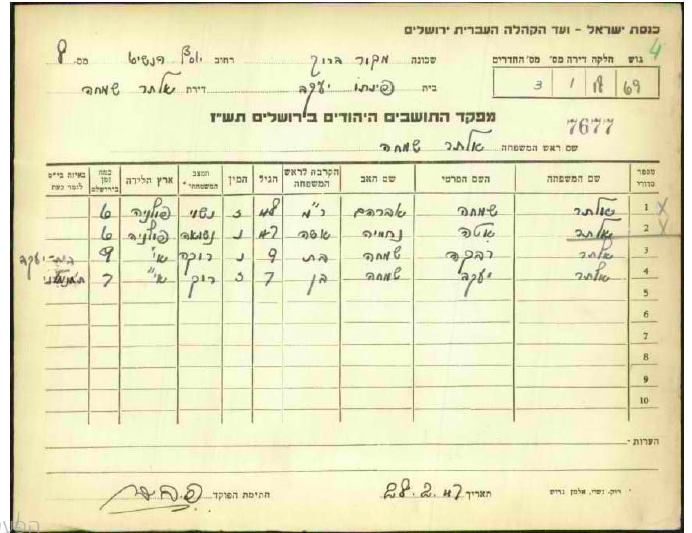 כנסת ישראל - ועד הקהלה העברית ירושלים
4
גוש חלקה דירה מס' מס' החדרים
69 18 1 3
שכונה מקור ברוך רחוב יוסף הנשיא מס. 8
בית פינתו יעקב דירת אלתר שמחה
מפקד התושבים היהודים בירושלים תש"ז
7677
שם ראש המשפחה אלתר שמחה
מספר סדורי שם המשפחה השם הפרטי שם האב הקרבה לראש המשפחה הגיל המין המצב המשפחתי* ארץ הלידה כמה זמן בירושלים באיזה בי"ס לומד כעת
1 אלתר שמחה אברהם ר"מ 48 ז נשוי פולניה 6
2 אלתר אטה נחמיה אשה נ נשואה פולניה 6
3 אלתר רבקה שמחה בת 9 נ רוקה א"י 9 בית-יעקב
4 אלתר יעקב שמחה בן 7 ז רוק א"י 7
5
6
7
8
9
10
הערות
* רוק, נשוי, אלמן, גרוש תאריך 28.2.47 חתימת הפוקד